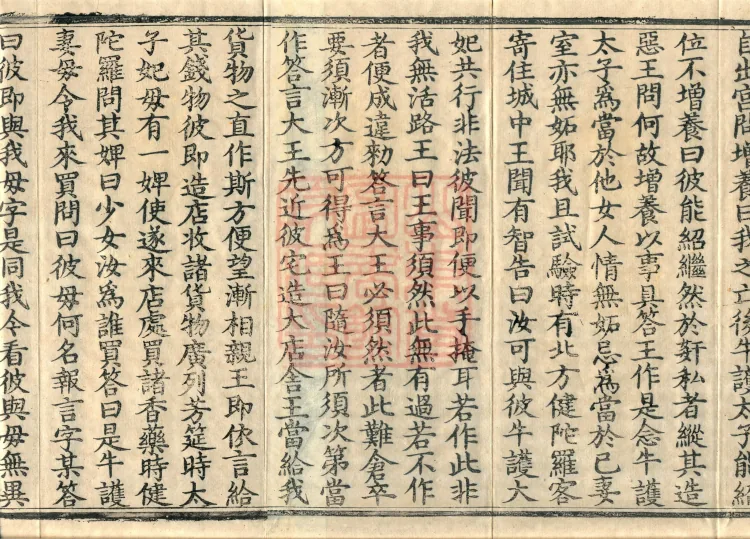 自出宮問增養曰我之亡後牛護太子能紹
位不增養曰彼能紹繼然於姧私者縱其造
惡王問何故增養以事具答王作是念牛護
太子爲當於他女人情無妬忌爲當於己妻
室亦無妬耶我且試驗時有北方健陀羅客
寄住城中王聞有智告曰汝可與彼牛護大
妃共行非法彼聞即便以手掩耳若作此非
我無活路王曰王事須然此無有過若不作
者便成違勑答言大王必須然者此難倉卒
要須漸次方可得爲王曰隨汝所須次第當
作答言大王先近彼宅造大店舍王當給我
貨物之直作斯方便望漸相親王即依言給
其錢物彼即造店收諸貨物廣列芳筵時太
子妃母有一婢使遂來店處買諸香藥時健
陀羅問其婢曰少女汝爲誰買答曰是牛護
妻母令我來買問曰彼母何名報言字某答
曰彼即與我母字是同我今看彼與母無異